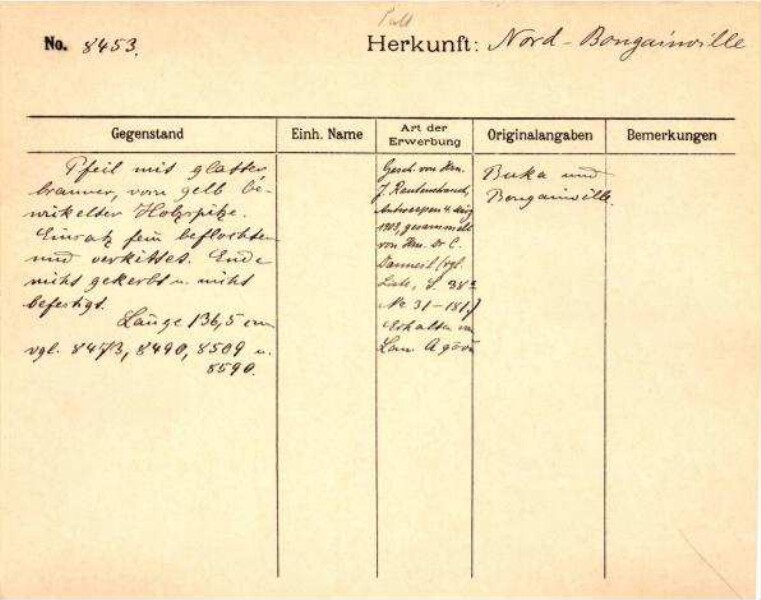 No. 8453.
Herkunft: Nord-Bougainville
Gegenstand
Einh. Name
Art der Erwerbung
Originalangaben
Bemerkungen
Pfeil mit glatter,
brauner, vorn gelb be-
wickelter Holzspitze.
Einsatz fein beflochten
und verkittet. Ende
nicht gekerbt u. nicht
befestigt.
Länge 136,5 cm
vgl. 8473, 8490, 8509 u.
8590.
Gesch. von Hrn.
J. Rautenstrauch,
Antwerpen 4. März
1903, gesammelt
von Hrn. Dr C.
(vgl.
Liste, S. 38
No 31-181)
Erhalten von
Buka und
Bougainville.